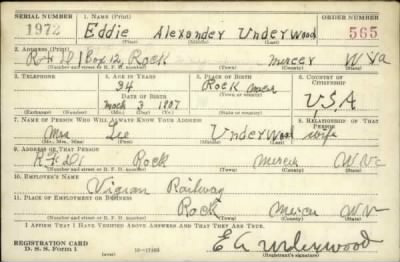 SERIAL NUMBER 1. NAME (Print) ORDER NUMBER
1972 Eddie Alexander Underwood 565
(First) (Middle) (Last)
2. ADDRESS (Print)
RFD1 Box 12, Rock Mercer W Va
(Number and street or R. F. D. number) (Town) (County) (State)
3. TELEPHONE 4. AGE IN YEARS 5. PLACE OF BIRTH 6. COUNTRY OF CITIZENSHIP
34 Rock Mercer
DATE OF BIRTH (Town or county)
March 3 1907 U.S.A
(Exchange) (Number) (Mo.) (Day) (Yr.) (State or country)
7. NAME OF PERSON WHO WILL ALWAYS KNOW YOUR ADDRESS 8. RELATIONSHIP OF THAT PERSON
Mrs Lee Underwood wife
(Mr., Mrs., Miss) (First) (Middle) (Last)
9. ADDRESS OF THAT PERSON
RFD1 Rock Mercer W Va
(Number and street or R. F. D. number) (Town) (County) (State)
10. EMPLOYER'S NAME
Railway
11. PLACE OF EMPLOYMENT OR BUSINESS
Rock Mercer W Va
(Number and street or R. F. D. number) (Town) (County) (State)
I AFFIRM THAT I HAVE VERIFIED ABOVE ANSWERS AND THAT THEY ARE TRUE.
REGISTRATION CARD
D. S. S. Form 1 E A Underwood
(Registrant's signature)